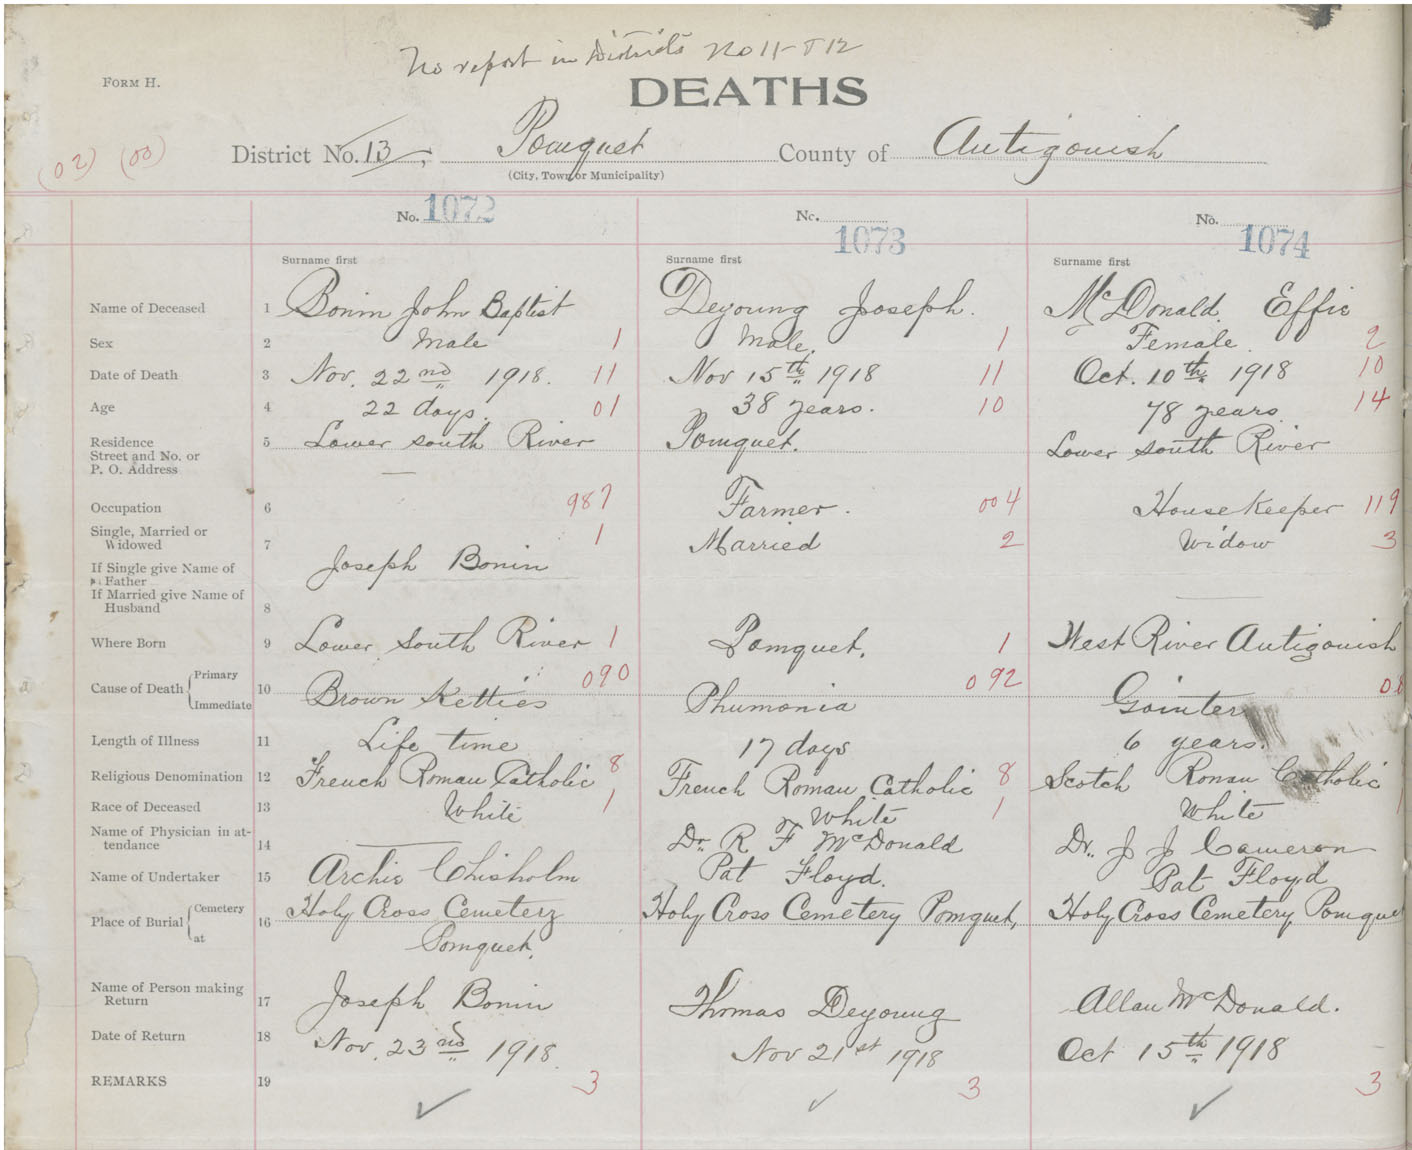 No report in Districts No 11 & 12
FORM H.
DEATHS
(02) (00)
District No. 13, Pomquet County of Antigonish
(City, Town or Municipality)
No. 1072 No. 1073 No. 1074
Surname first Surname first Surname first
Name of Deceased 1 Bonin John Baptist Deyoung Joseph. McDonald. Effie
Sex 2 Male 1 Male. 1 Female. 2
Date of Death 3 Nov. 22nd 1918. 11 Nov 15th 1918 11 Oct. 10th 1918 10
Age 4 22 days. 01 38 years. 10 78 years 14
Residence 5 Lower South River Pomquet. Lower South River
Street and No. or
P. O. Address —
Occupation 6 987 Farmer. 004 House Keeper 119
Single, Married or
Widowed 7 1 Married 2 Widow 3
If Single give Name of Joseph Bonin
Father
If Married give Name of
Husband 8
Where Born 9 Lower South River 1 Pomquet. 1 West River Antigonish
Cause of Death Primary 090 092 08
10 Brown Ketties Phumonia Gointer
Immediate
Length of Illness 11 Life time 17 days 6 years.
Religious Denomination 12 French Roman Catholic 8 French Roman Catholic 8 Scotch Roman Catholic
Race of Deceased 13 White 1 White 1 White
Name of Physician in at-
tendance 14 — Dr. R F McDonald Dr. J J Cameron
Name of Undertaker 15 Archie Chisholm Pat Floyd. Pat Floyd
Place of Burial Cemetery 16 Holy Cross Cemetery Holy Cross Cemetery Pomquet, Holy Cross Cemetery Pomquet
at Pomquet.
Name of Person making
Return 17 Joseph Bonin Thomas Deyoung Allan McDonald.
Date of Return 18 Nov. 23nd 1918 Nov 21st 1918 Oct 15th 1918
REMARKS 19 3 3 3